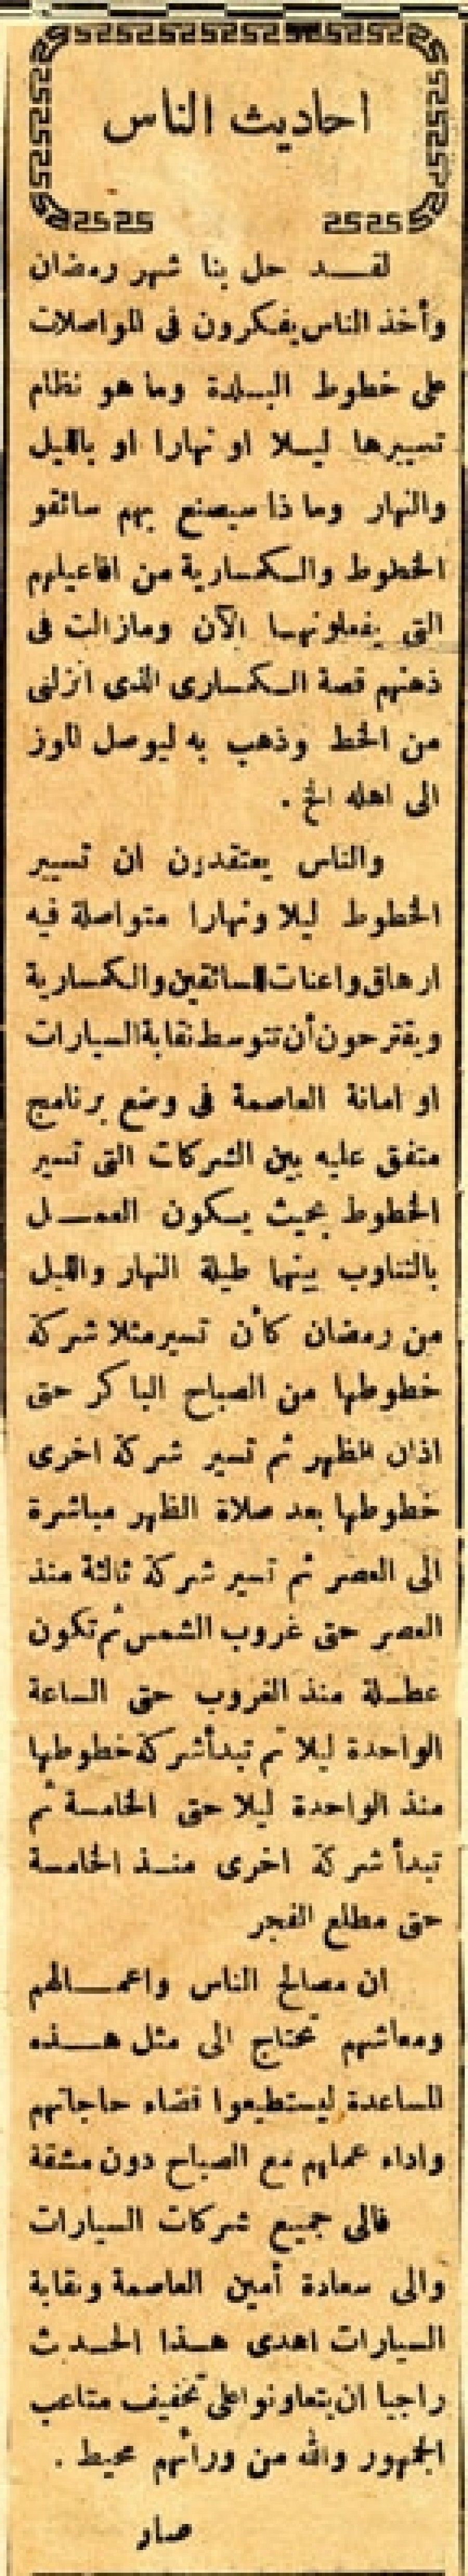 احاديث الناس
لقد حل بنا شهر رمضان
وأخذ الناس يفكرون فى المواصلات
على خطوط البلدة وما هو نظام
تسييرها ليلا او نهارا او بالليل
والنهار وماذا سيصنع بهم سائقو
الخطوط والكمسارية من افاعيلهم
التى يفعلونها الآن ومازالت فى
ذهنهم قصة الكمسارى الذى انزلنى
من الخط وذهب به ليوصل الموز
الى اهله الخ .
والناس يعتقدون ان تسيير
الخطوط ليلا ونهارا متواصلة فيه
ارهاق واعنات للسائقين والكمسارية
ويقترحون أن تتوسط نقابة السيارات
او امانة العاصمة فى وضع برنامج
متفق عليه بين الشركات التى تسير
الخطوط بحيث يكون العمل
بالتناوب بينها طيلة النهار والليل
من رمضان كأن تسير مثلا شركة
خطوطها من الصباح الباكر حتى
اذان الظهر ثم تسير شركة اخرى
خطوطها بعد صلاة الظهر مباشرة
الى العصر ثم تسير شركة ثالثة منذ
العصر حتى غروب الشمس ثم تكون
عطلة منذ الغروب حتى الساعة
الواحدة ليلا ثم تبدأ شركة خطوطها
منذ الواحدة ليلا حتى الخامسة ثم
تبدأ شركة اخرى منذ الخامسة
حتى مطلع الفجر
ان مصالح الناس واعمالهم
ومعاشهم تحتاج الى مثل هذه
المساعدة ليستطيعوا قضاء حاجاتهم
واداء عملهم مع الصباح دون مشقة
فالى جميع شركات السيارات
والى سعادة أمين العاصمة ونقابة
السيارات اهدى هذا الحدث
راجيا ان يتعاونوا على تخفيف متاعب
الجمهور والله من ورائهم محيط .
صار